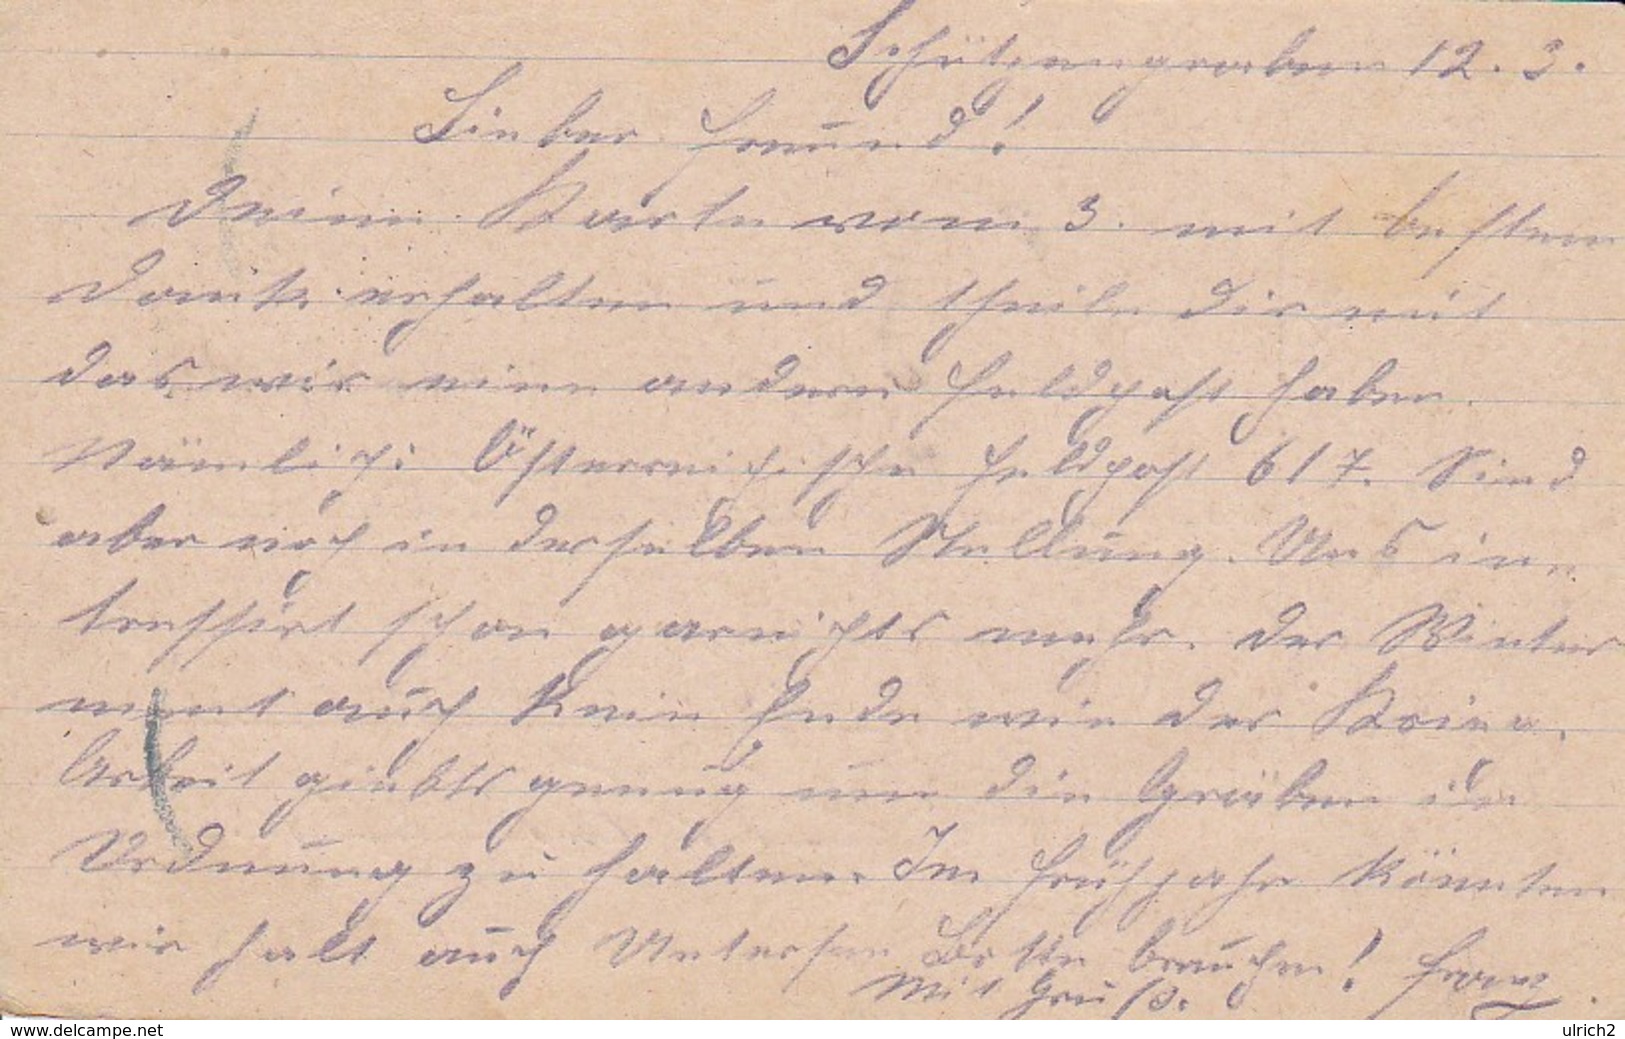 Schützengraben 12. 3.
Lieber Freund!
Deine Karte vom 3. mit besten
Dank erhalten und theile dir mit
das wir eine andere Feldpost haben.
Nämlich: Österreichische Feldpost 617. Sind
aber noch in derselben Stellung. Uns in
tressirt schon garnichts mehr. Der Winter
auch kein Ende wie der Krieg.
Arbeit giebts genug um die Gräben in
Ordnung zu halten. Im Frühjahr könnten
wir halt auch brauchen! Franz.
Mit Gruß.
www.delcampe.net
ulrich2